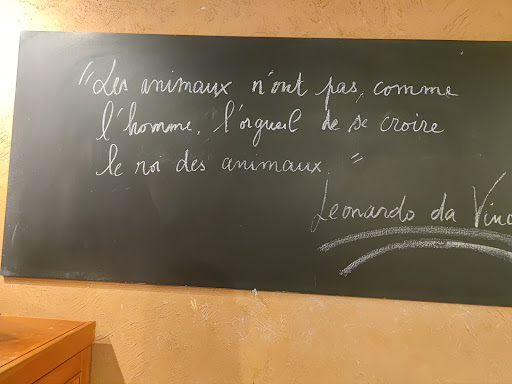 "Les animaux n'ont pas, comme
l'homme, l'orgueil de se croire
le roi des animaux."
Leonardo da Vinc